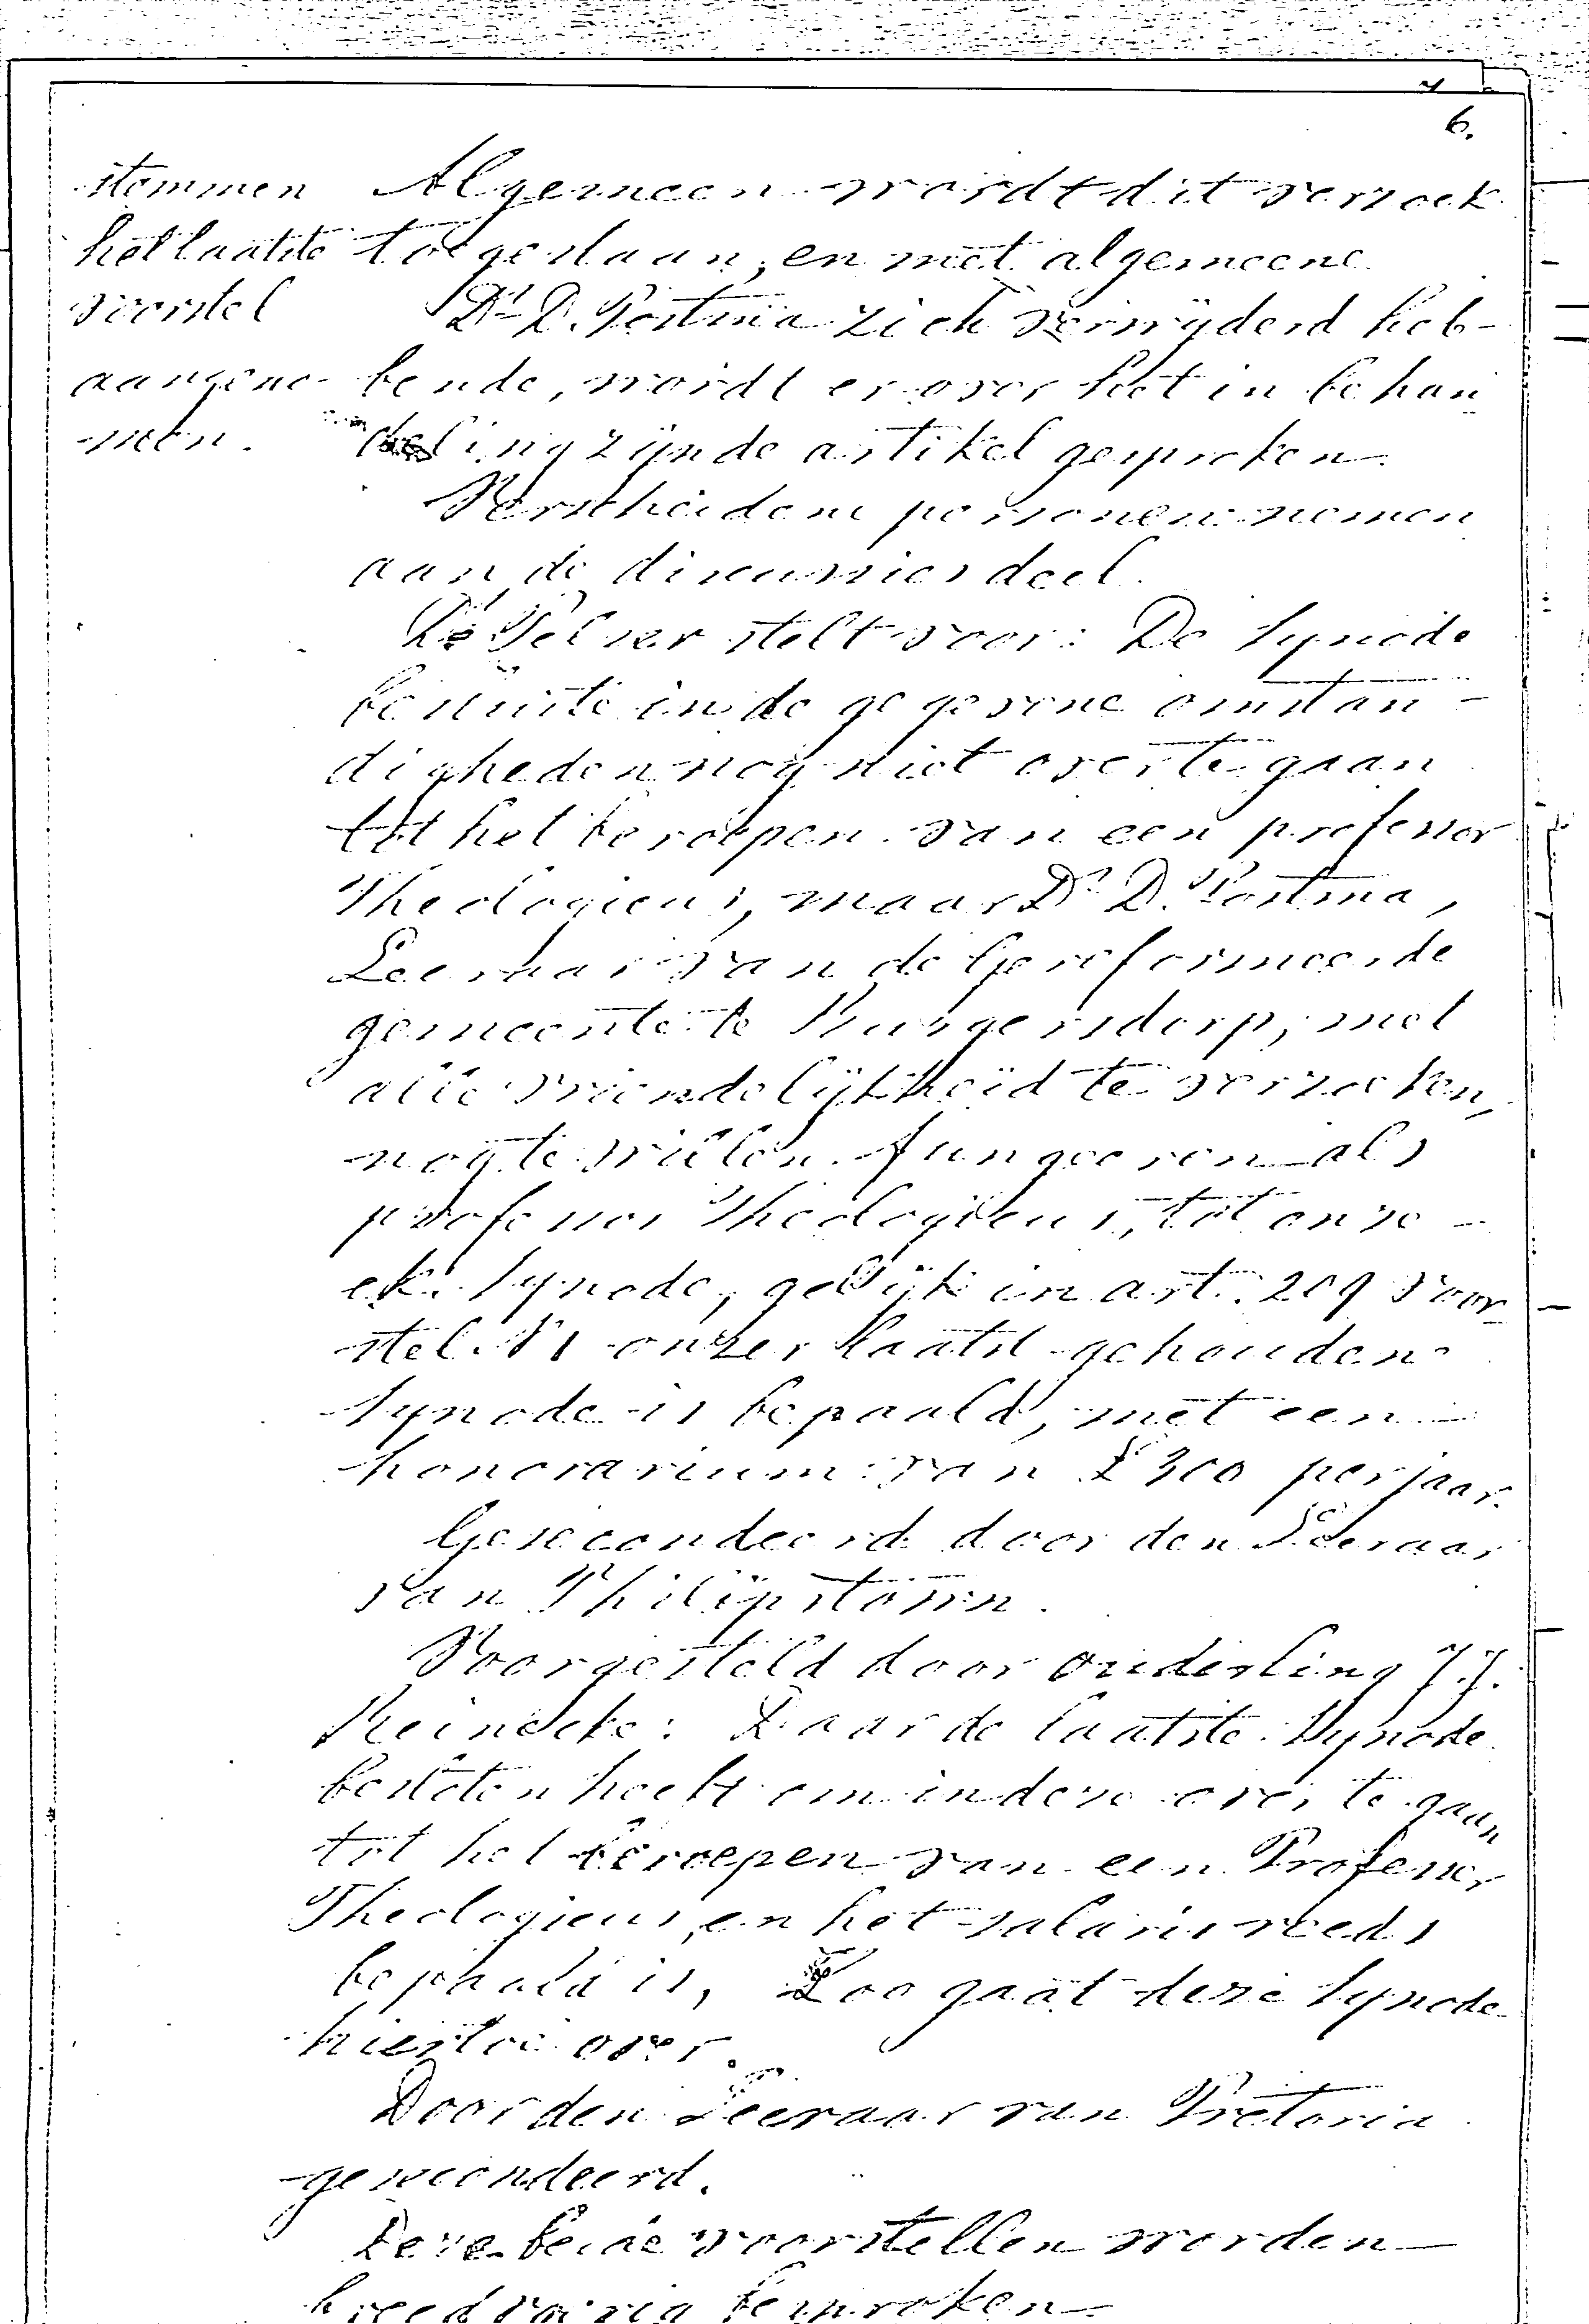 6.
stemmen
het laatste
voorstel
aangeno-
men.
Algemeen wordt dit verzoek
toegestaan, en met algemeene
Ds D. Postma zich verwijderd heb-
bende, wordt er over het in behan
deling zijnde artikel gesproken.
Verscheidene personen nemen
aan de discussies deel.
stelt voor: De Synode
besluite in de gegevene omstan-
digheden nog niet over te gaan
tot het beroepen van een professor
Theologicus, maar Ds D. Postma,
Leeraar van de Gereformeerde
gemeente te Burgersdorp, met
alle vriendelijkheid te verzoeken,
nog te willen fungeeren als
professor Theologicus, tot onze
ek. Synode, gelijk in art. 209 voor
stel onzer laatst gehouden
Synode is bepaald, met een
honorarium van £ 300 per jaar.
Gesecondeerd door den Leeraar
van Philipstown.
Voorgesteld door ouderling J.J.
Reinecke: Daar de laatste Synode
besloten heeft om in deze over te gaan
tot het beroepen van een Professor
Theologicus, en het salaris reeds
bepaald is, Zoo gaat deze Synode
hiertoe over.
Door den Leeraar van Pretoria
gesecondeerd.
Deze beide voorstellen worden
breedvoerig besproken